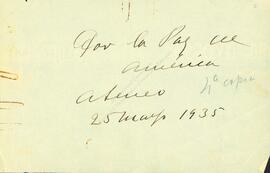 Por la Paz de
América
4ª copia
Ateneo
25 mayo 1935